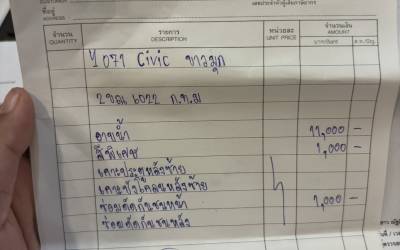 CUSTOMER
ที่อยู่
ADDRESS
เลขประจำตัวผู้เสียภาษีอากร
จำนวน รายการ หน่วยละ จำนวนเงิน
QUANTITY DESCRIPTION UNIT PRICE AMOUNT
Y 071 Civic ขาวมุก
6022 ก.ท.ม
11,000 -
สีพิเศษ 1,000 -
เคาะประตูหลังซ้าย
เคาะบังโคลนหลังซ้าย
ซ่อมตัดกันชนหน้า 1,000 -
ซ่อมตัดกันชนหลัง